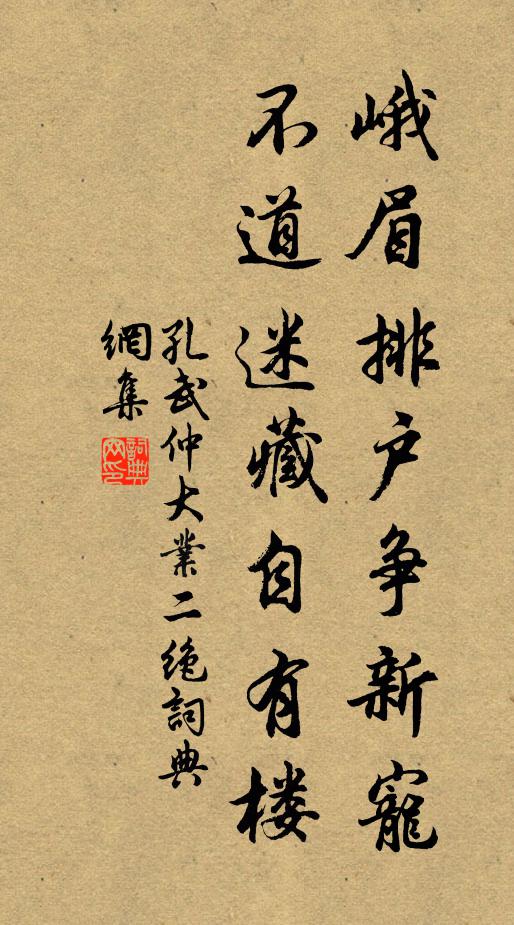 峨眉排户争新寵
不道迷藏自有楼
孔武仲大業二絶詞典
網集
詞典網印